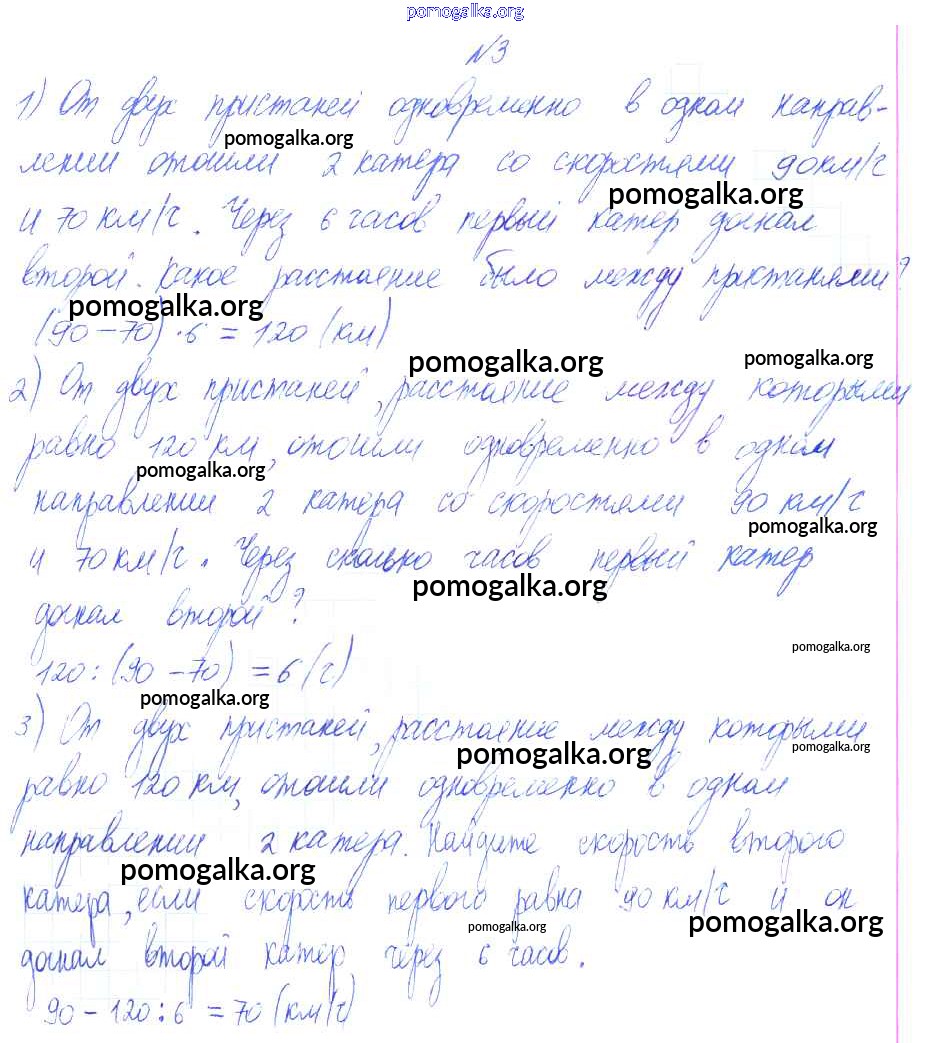 pomogalka.org
№3
1) От двух пристаней одновременно в одном направ-
pomogalka.org
лении отошли 2 катера со скоростями 90 км/ч
pomogalka.org
и 70 км/ч. Через 6 часов первый катер догнал
второй. Какое расстояние было между пристанями?
pomogalka.org
(90 – 70) · 6 = 120 (км)
pomogalka.org pomogalka.org
2) От двух пристаней, расстояние между которыми
равно 120 км, отошли одновременно в одном
pomogalka.org
направлении 2 катера со скоростями 90 км/ч
pomogalka.org
и 70 км/ч. Через сколько часов первый катер
pomogalka.org
догнал второй?
pomogalka.org
120 : (90 – 70) = 6 (ч)
pomogalka.org
3) От двух пристаней, расстояние между которыми
pomogalka.org pomogalka.org
равно 120 км, отошли одновременно в одном
направлении 2 катера. Найдите скорость второго
pomogalka.org
катера, если скорость первого равна 90 км/ч и он
pomogalka.org pomogalka.org
догнал второй катер через 6 часов.
90 – 120 : 6 = 70 (км/ч)